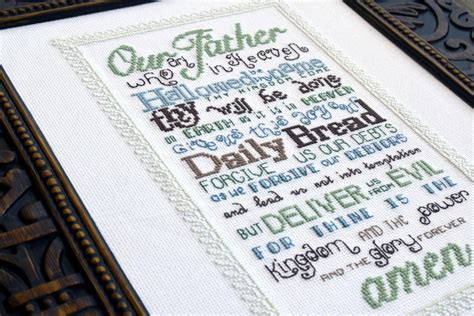 Our Father
who art in Heaven
Hallowed be thy name
thy will be done
in EARTH as it is in HEAVEN
Give us this day our
Daily Bread
FORGIVE US OUR DEBTS
as we FORGIVE OUR DEBTORS
and lead us not into temptation
BUT DELIVER US from EVIL
FOR THINE IS THE
kingdom AND THE power
AND THE glory FOREVER
amen